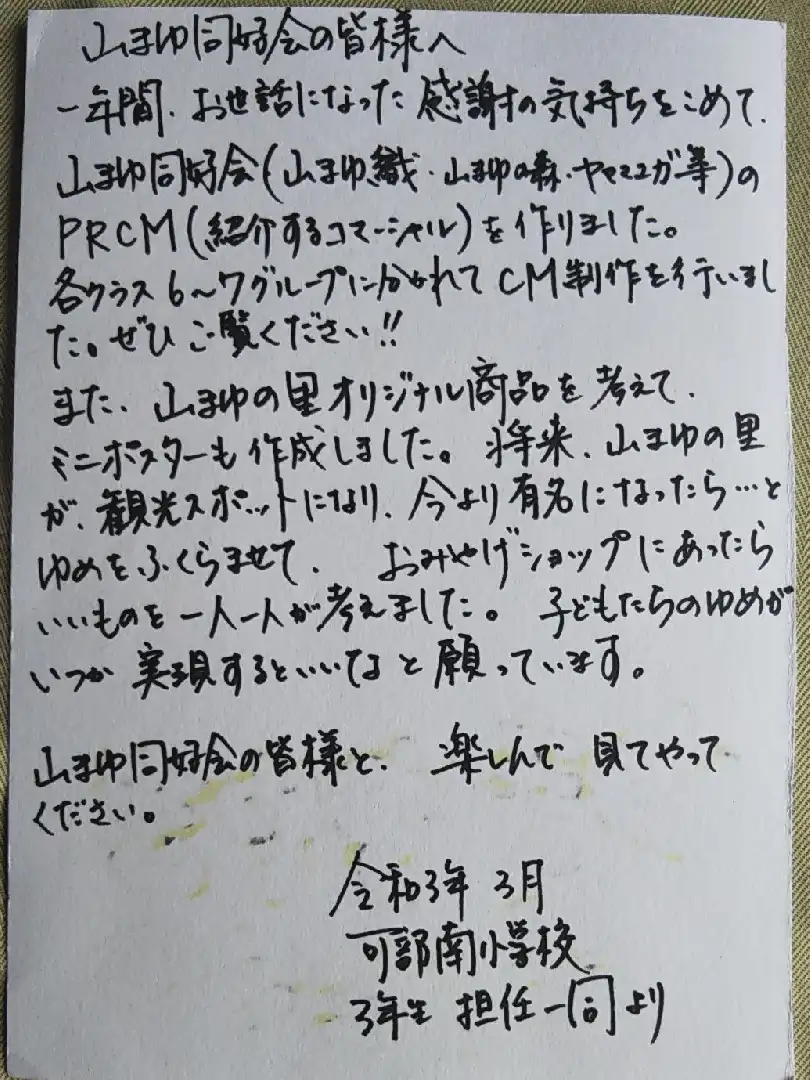 山まゆ同好会の皆様へ
一年間、お世話になった感謝の気持ちをこめて、
山まゆ同好会(山まゆ織・山まゆの森・ヤママユガ等)の
PRCM(紹介するコマーシャル)を作りました。
各クラス6~7グループにわかれてCM制作を行いまし
た。ぜひご覧ください!!
また、山まゆの里オリジナル商品を考えて、
ミニポスターも作成しました。将来、山まゆの里
が、観光スポットになり、今より有名になったら…と
ゆめをふくらませて、おみやげショップにあったら
いいものを一人一人が考えました。子どもたちのゆめが
いつか実現するといいなと願っています。
山まゆ同好会の皆様と、楽しんで見てやって
ください。
令和3年3月
可部南小学校
3年生 担任一同より